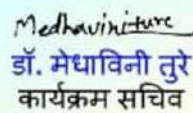 Medhaviniture
डॉ. मेधाविनी तुरे
कार्यक्रम सचिव